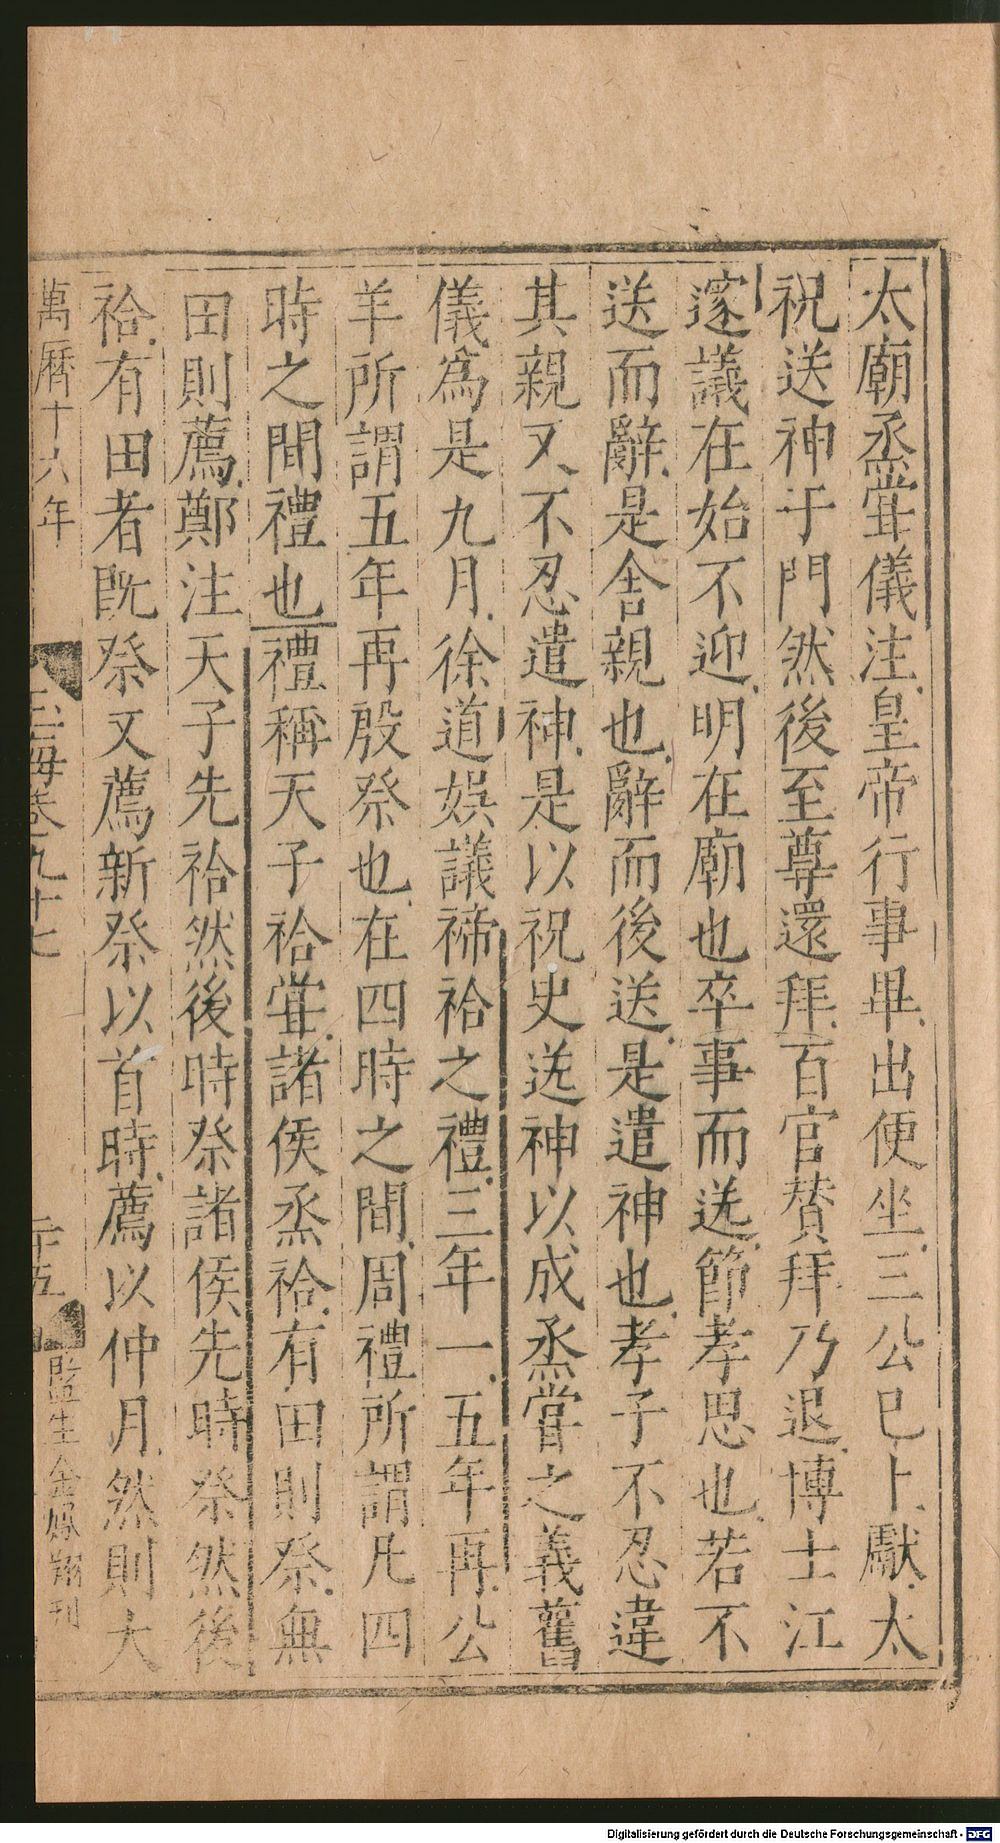 太廟烝嘗儀注皇帝行事畢出便坐三公巳上獻太
祝送神于門然後至尊還拜百官賛拜乃退博士江
邃議在始不迎明在廟也卒事而送節孝思也若不
送而辭是舍親也辭而後送是遣神也孝子不忍違
其親又不忍遣神是以祝史送神以成烝嘗之義舊
儀爲是九月徐道娛議禘祫之禮三年一五年再公
羊所謂五年再殷祭也在四時之間周禮所謂凡四
時之間禮也禮稱天子祫嘗諸侯烝祫有田則祭無
田則薦鄭注天子先祫然後時祭諸侯先時祭然後
祫有田者既祭又薦新祭以首時薦以仲月然則大
萬曆十六年
志卷九十七
二十五
監生金鳳翔刊
Digitalisierung gefördert durch die Deutsche Forschungsgemeinschaft - DFG